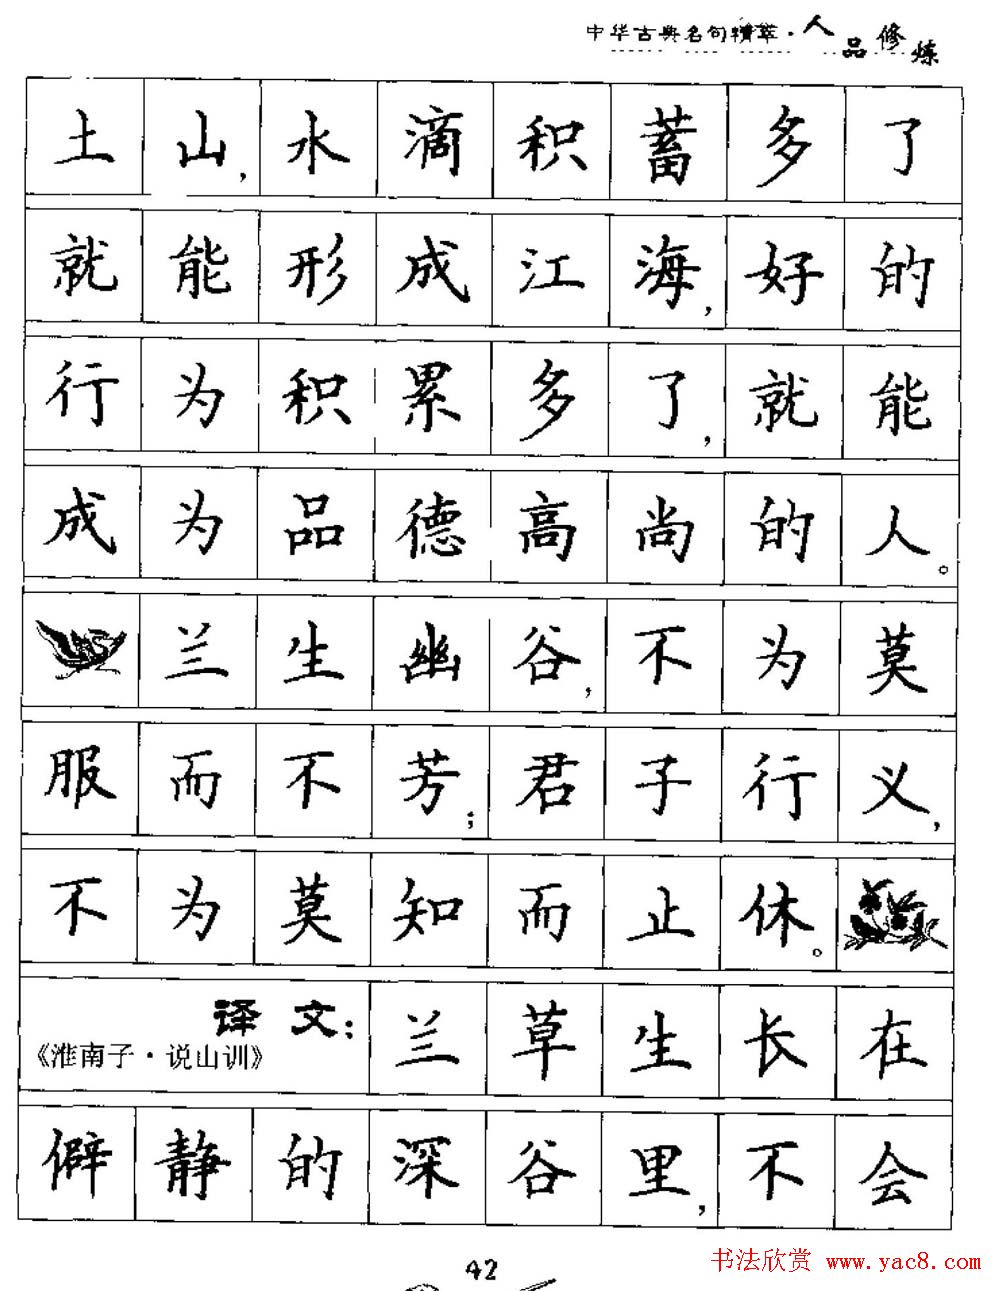 中华古典名句精萃·人品修炼
土山,水滴积蓄多了
就能形成江海,好的
行为积累多了,就能
成为品德高尚的人。
兰生幽谷,不为莫
服而不芳;君子行义,
不为莫知而止休。
译文:兰草生长在
《淮南子·说山训》
僻静的深谷里,不会
42
书法欣赏 www.yac8.com